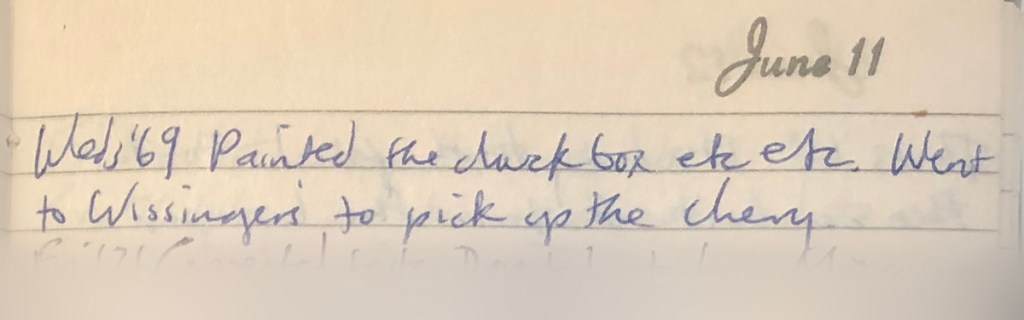 June 11
Weds '69 Painted the duck box etc etc. Went
to Wissingers to pick up the